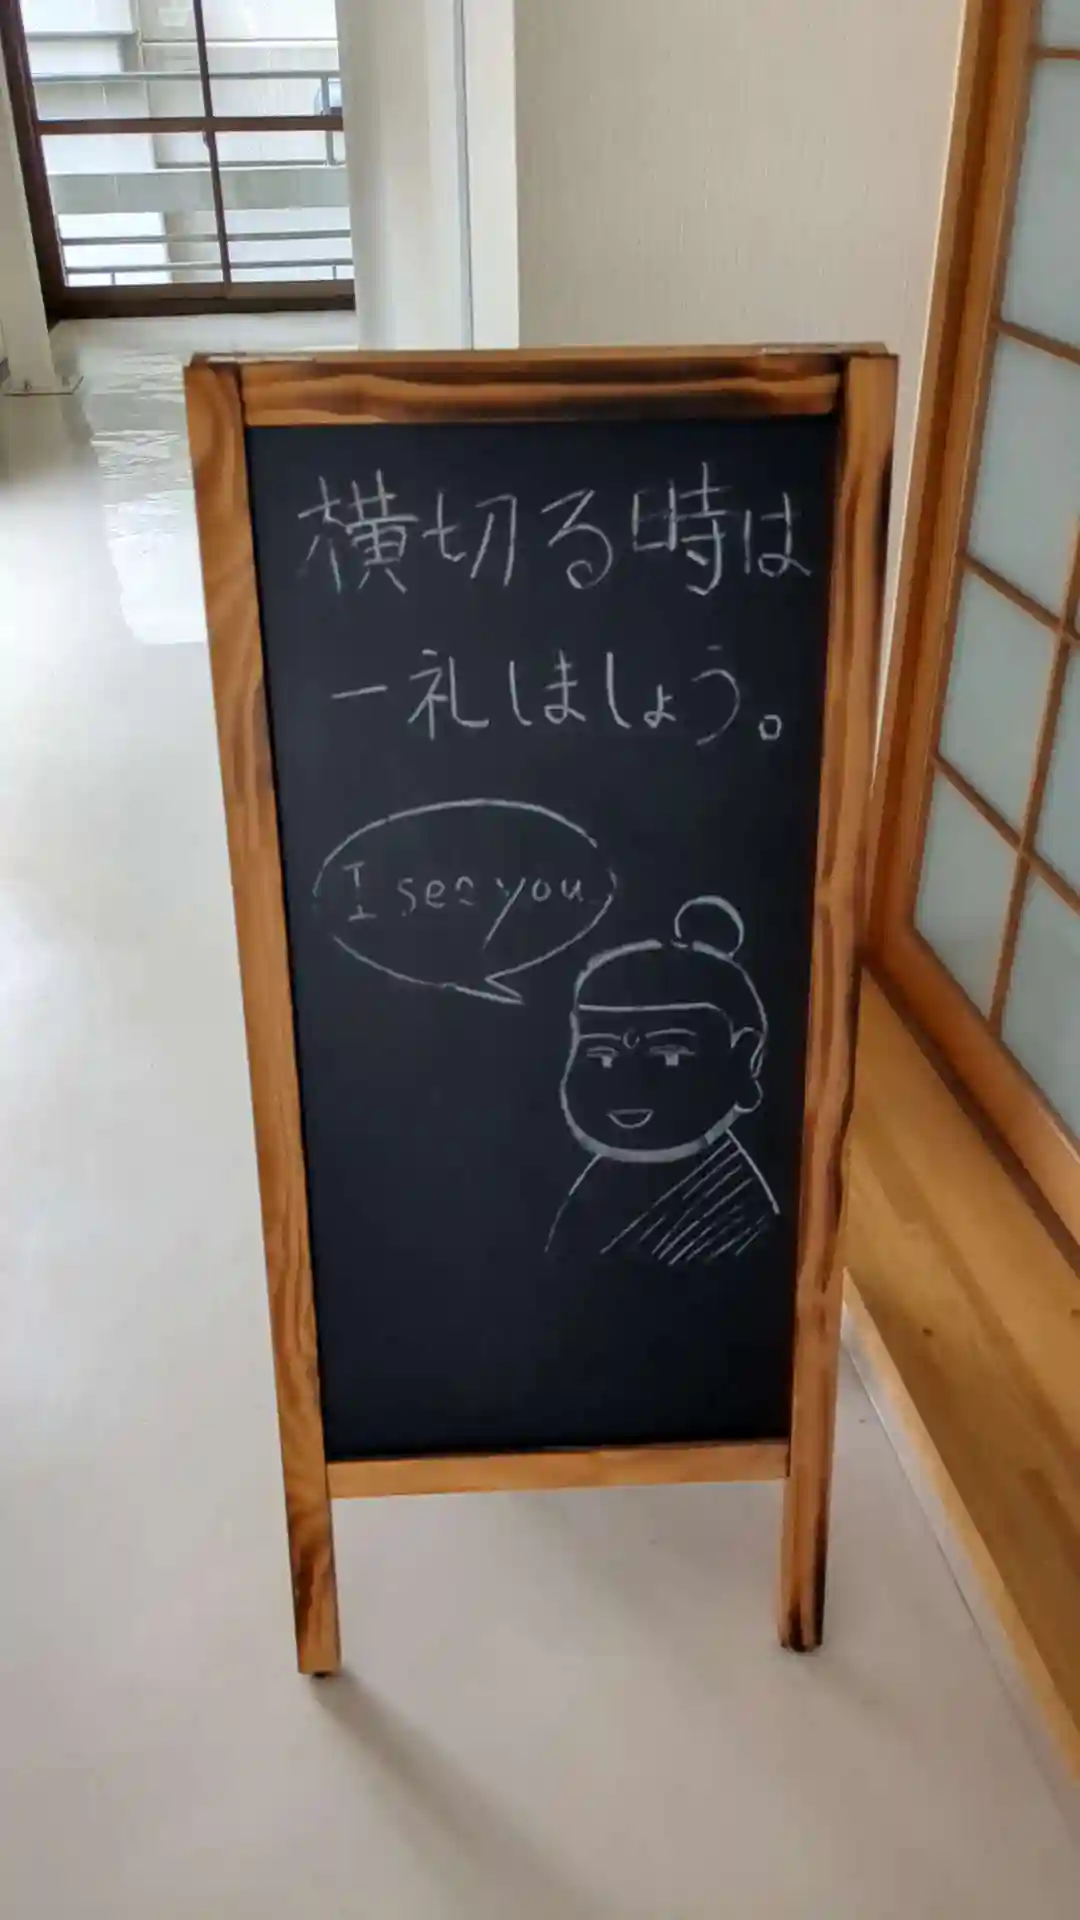 横切る時は
一礼しましょう。
I see you